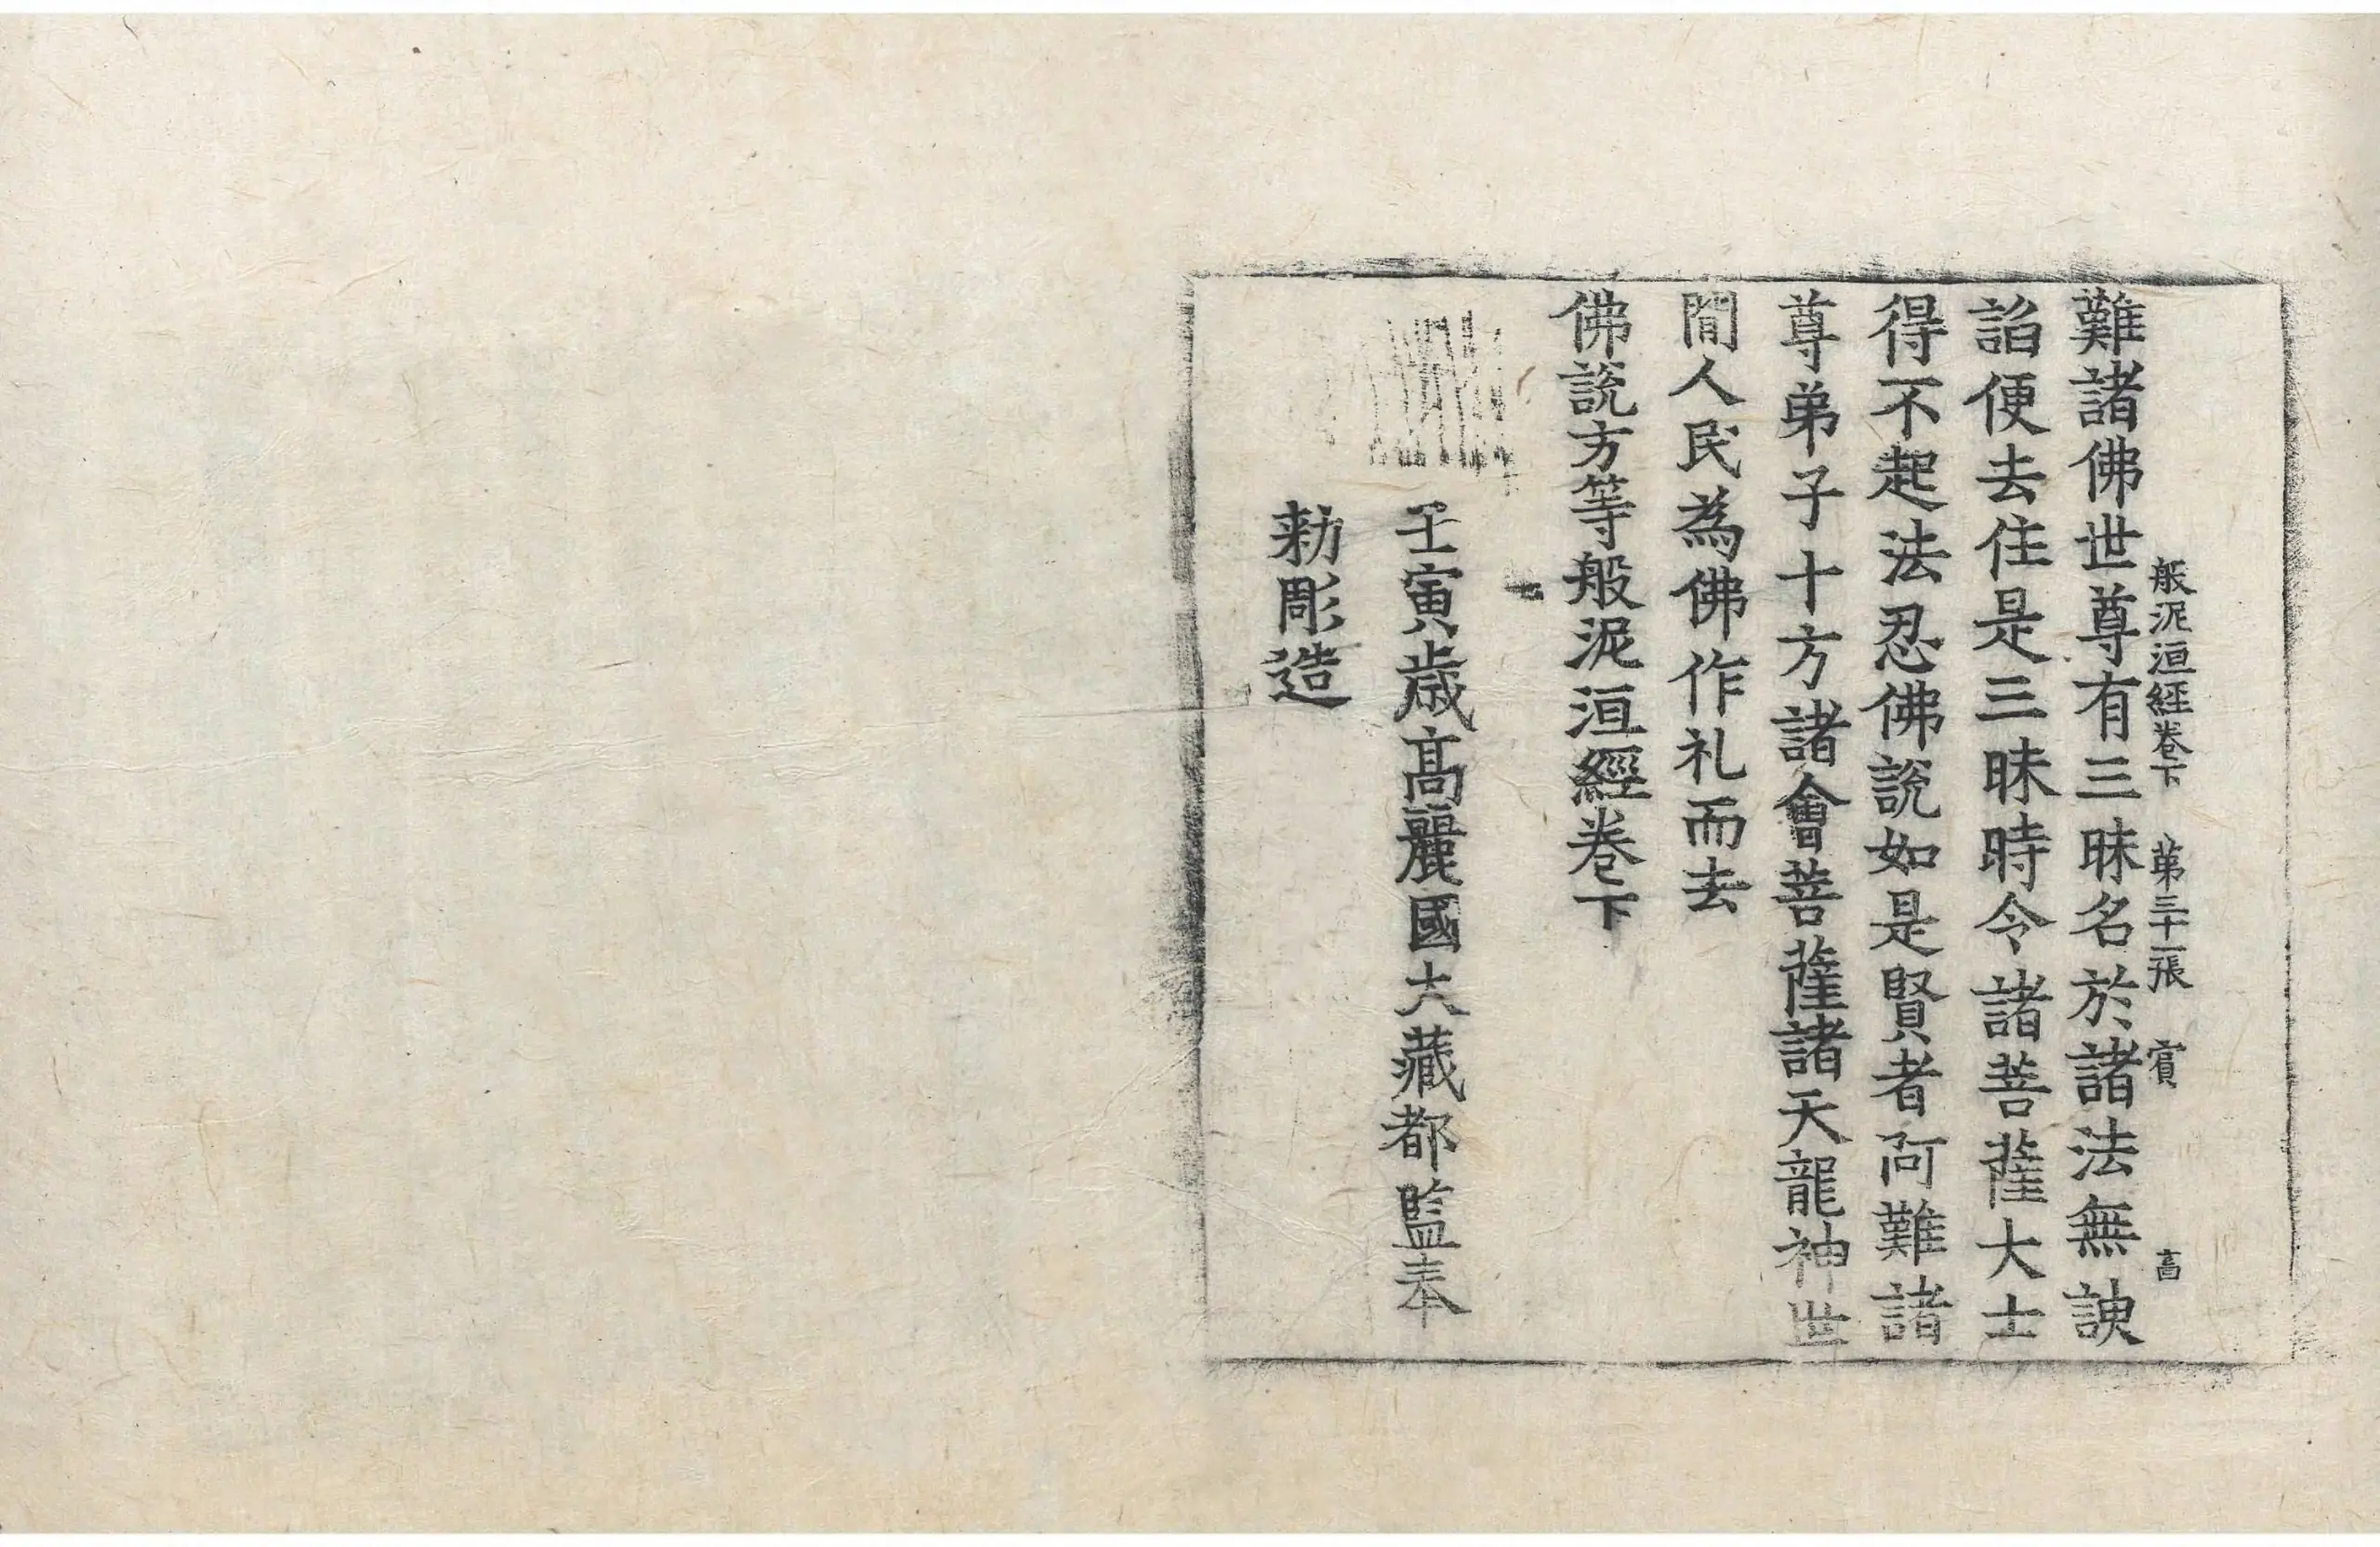 般泥洹經卷下 第三十一張 賓 高
難諸佛世尊有三昧名於諸法無諛
諂便去住是三昧時令諸菩薩大士
得不起法忍佛說如是賢者阿難諸
尊弟子十方諸會菩薩諸天龍神世
閒人民為佛作礼而去
佛說方等般泥洹經卷下
壬寅歲高麗國大藏都監奉
勑彫造